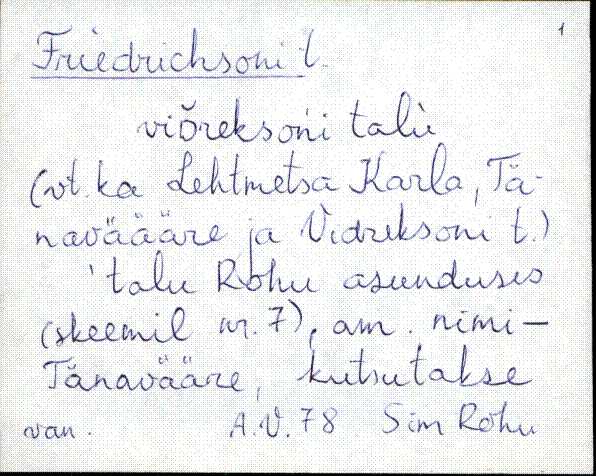 1
Friedrichsoni t.
viŏreksońi talù
(vt. ka Lehtmetsa Karla, Tä-
naväääre ja Vidreksoni t.)
'talu Rõhu asunduses
(skeemil nr. 7), am. nimi –
Tänavääre, kutsutakse
van. A.V. 78 Sim Rõhu